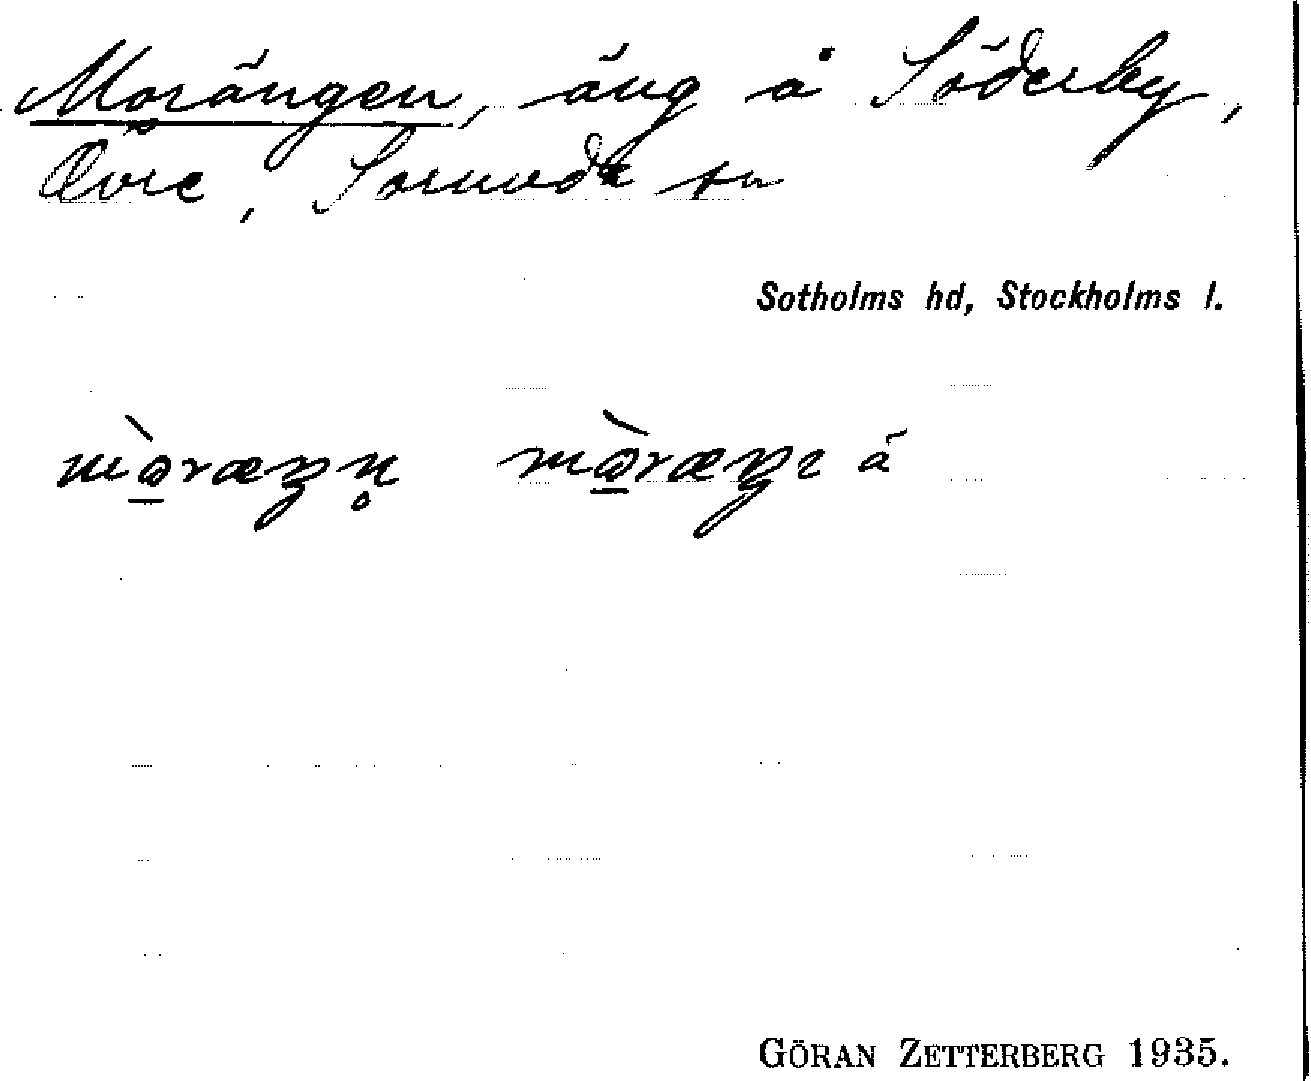 Morängen, äng å Söderby,
Övre, Sorunda sn
Sotholms hd, Stockholms l.
GÖRAN ZETTERBERG 1935.